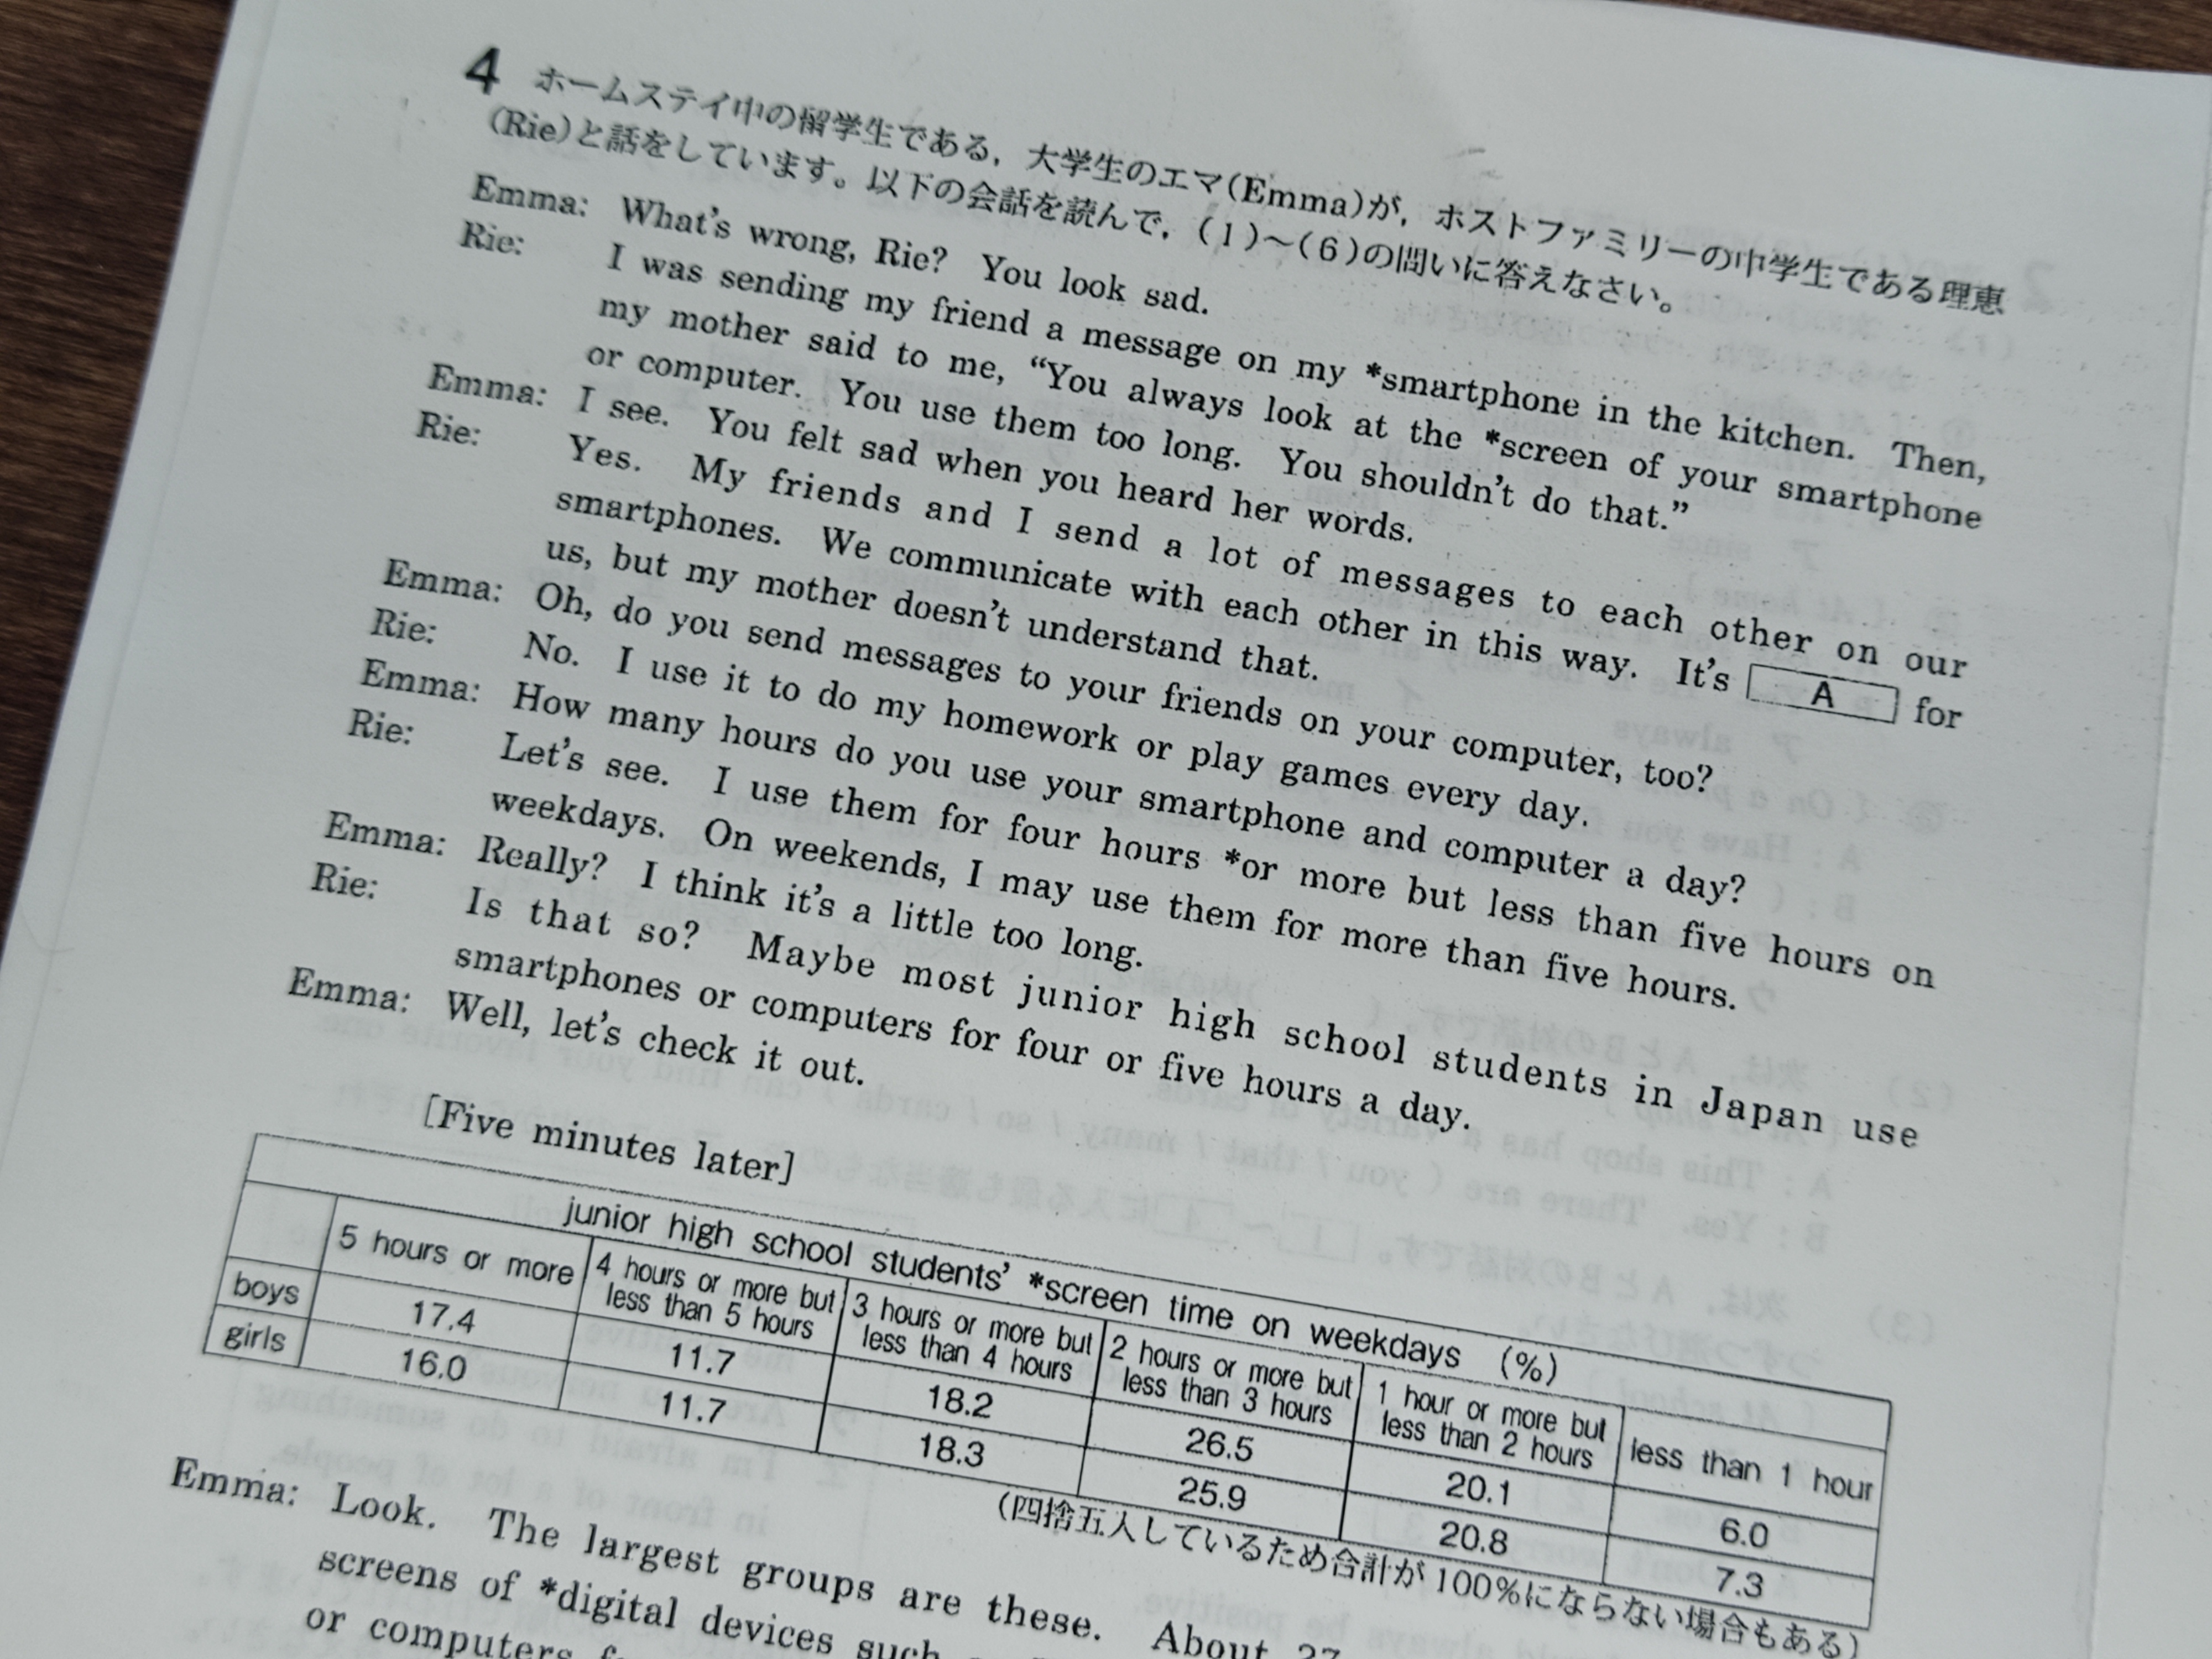 4 ホームステイ中の留学生である，大学生のエマ(Emma)が，ホストファミリーの中学生である理恵
(Rie)と話をしています。以下の会話を読んで，(1)～(6)の問いに答えなさい。
Emma: What's wrong, Rie? You look sad.
Rie: I was sending my friend a message on my *smartphone in the kitchen. Then,
my mother said to me, “You always look at the *screen of your smartphone
or computer. You use them too long. You shouldn't do that.”
Emma: I see. You felt sad when you heard her words.
Rie: Yes. My friends and I send a lot of messages to each other on our
smartphones. We communicate with each other in this way. It's A for
us, but my mother doesn't understand that.
Emma: Oh, do you send messages to your friends on your computer, too?
Rie: No. I use it to do my homework or play games every day.
Emma: How many hours do you use your smartphone and computer a day?
Rie: Let's see. I use them for four hours *or more but less than five hours on
weekdays. On weekends, I may use them for more than five hours.
Emma: Really? I think it's a little too long.
Rie: Is that so? Maybe most junior high school students in Japan use
smartphones or computers for four or five hours a day.
Emma: Well, let's check it out.
[Five minutes later]
junior high school students' *screen time on weekdays (%)
5 hours or more | 4 hours or more but less than 5 hours | 3 hours or more but less than 4 hours | 2 hours or more but less than 3 hours | 1 hour or more but less than 2 hours | less than 1 hour
boys 17.4 11.7 18.2 26.5 20.1 6.0
girls 16.0 11.7 18.3 25.9 20.8 7.3
(四捨五入しているため合計が100%にならない場合もある)
Emma: Look. The largest groups are these. About
screens of *digital devices such
or computers